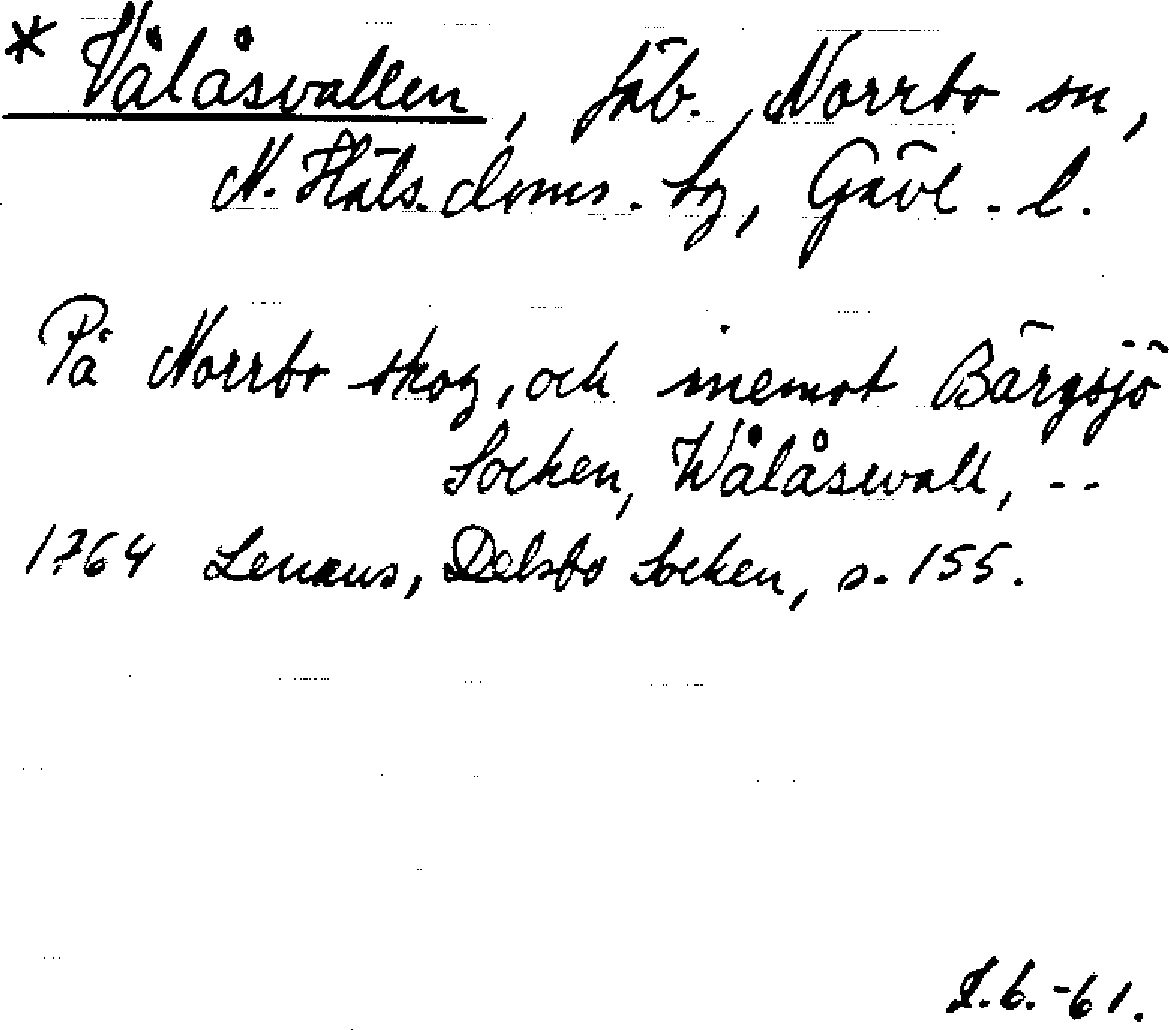 * Vålåsvallen, fäb., Norrbo sn,
N. Häls. doms. sg, Gävl. l.
På Norrbo skog, och inemot Bärgsjö
Socken, Wålåswall, --
1764 Lenæus, Delsbo Socken, s. 155.
I.6.-61.